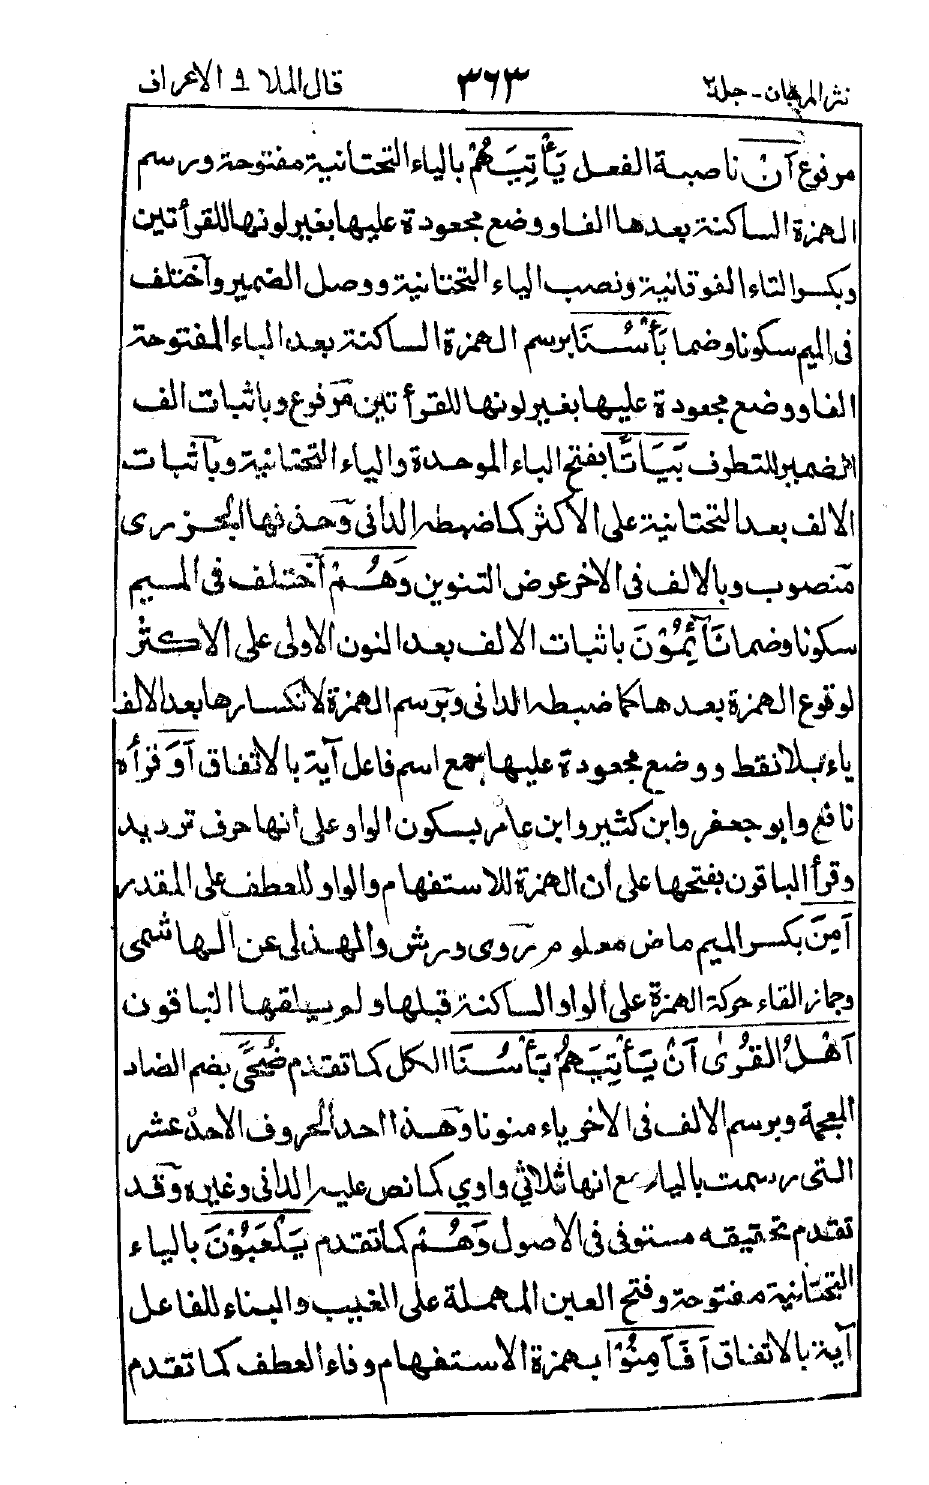 نثر المرجان - جلد ٢
٣٦٣
قال الملا ٩ الاعراف
مرفوع اَنْ ناصبة الفعل يَأْتِيَهُمْ بالياء التحتانية مفتوحة ورسم
الهمزة الساكنة بعدها الفا ووضع مجعودة عليها بغير لونها للقرأتين
وبكسر التاء الفوقانية ونصب الياء التحتانية ووصل الضمير واختلف
فى الميم سكونا وضما بَأْسُنَا برسم الهمزة الساكنة بعد الباء المفتوحة
الفا ووضع مجعودة عليها بغير لونها للقرأتين مرفوع وباثبات الف
الضمير للتطرف بَيَاتًا بفتح الباء الموحدة والياء التحتانية وباثبات
الالف بعد التحتانية على الاكثر كما ضبطه الدانى وحذفها الجزرى
منصوب وبالالف فى الاخر عوض التنوين وَهُمْ اختلف فى الميم
سكونا وضما نَآئِمُوْنَ باثبات الالف بعد النون الاولى على الاكثر
لوقوع الهمزة بعدها كما ضبطه الدانى وبرسم الهمزة لانكسارها بعد الالف
ياء بلا نقط ووضع مجعودة عليها جمع اسم فاعل آية بالاتفاق اَوَ قرأه
نافع وابو جعفر وابن كثير وابن عامر بسكون الواو على انها حرف ترديد
وقرأ الباقون بفتحها على ان الهمزة للاستفهام والواو للعطف على المقدر
اَمِنَ بكسر الميم ماض معلوم روى ورش والهذلى عن الهاشمى
وجماز القاء حركة الهمزة على الواو الساكنة قبلها ولم يلقها الباقون
اَهْلُ الْقُرٰى اَنْ يَأْتِيَهُمْ بَأْسُنَا الكل كما تقدم ضُحًى بضم الضاد
المعجمة وبرسم الالف فى الاخر ياء منونا وهذا احد الحروف الاحد عشر
التى رسمت بالياء مع انها ثلاثي واوي كما نص عليه الدانى وغيره وقد
تقدم تحقيقه مستوفى فى الاصول وَهُمْ كما تقدم يَلْعَبُوْنَ بالياء
التحتانية مفتوحة وفتح العين المهملة على الغيب والبناء للفاعل
آية بالاتفاق اَفَاَمِنُوْا بهمزة الاستفهام وفاء العطف كما تقدم